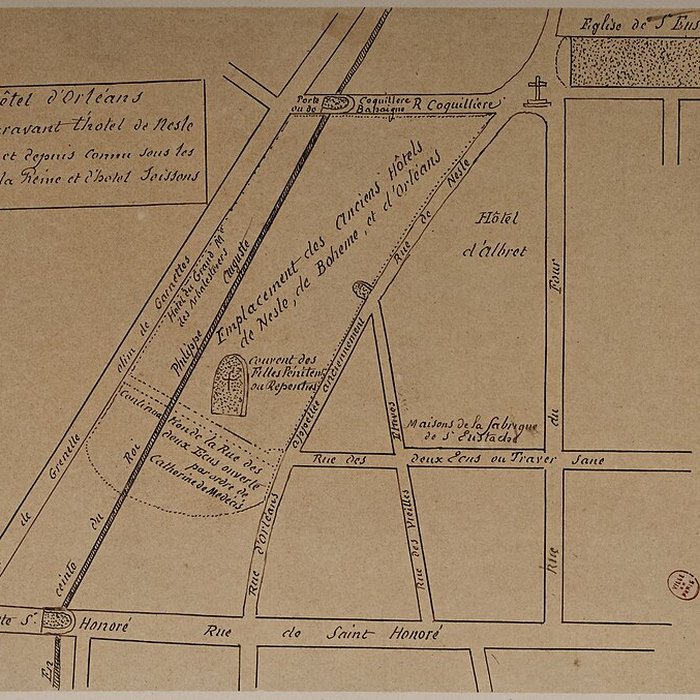 Eglise de St Eus
ôtel d'Orléans
ravant L'hotel de Nesle
et depuis connu sous les
la Reine et d'hotel Soissons
Porte Coquillere
ou de Bahaigne
R Coquilliere
Emplacement des Anciens Hôtels
de Nesle, de Boheme, et d'Orléans
Rue de Nesle
appellée anciennement
Hôtel
d'Albret
Hotel du Grand Me
des Arbalestriers
de Grenelle olim de Garnettes
En ceinte du Roi Philippe Auguste
Couvent des
Filles Péniten
ou Repenties
Continua
tion de la Rue des
deux Ecus ouverte
par ordre de
Catherine de Medecis
Maisons de la fabrique
de St Eustache
Rue des deux Ecus ou Traver sane
Rue d'Orléans
Rue des Vieilles Etuves
Rue du Four
te St Honoré
Rue de Saint Honoré
VILLE DE PARIS